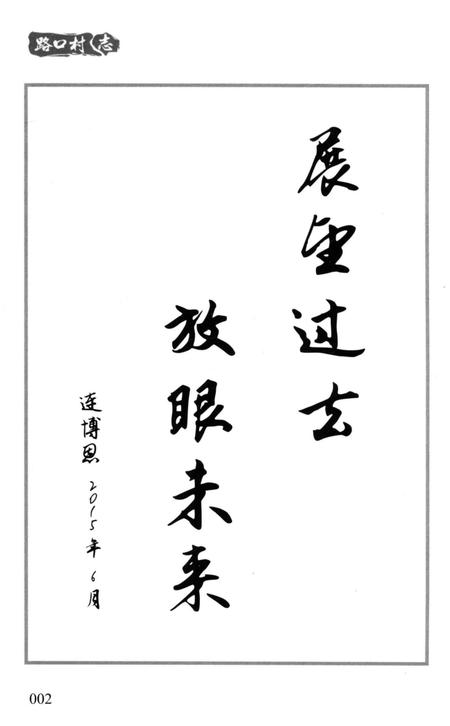 路口村志
展望过去
放眼未来
连博恩 2015年6月
002